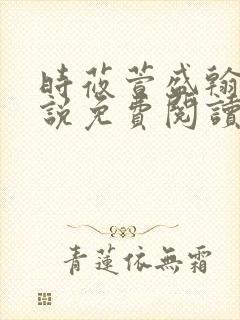 時莜萱盛翰
說免費閱讀
青蓮依無霜